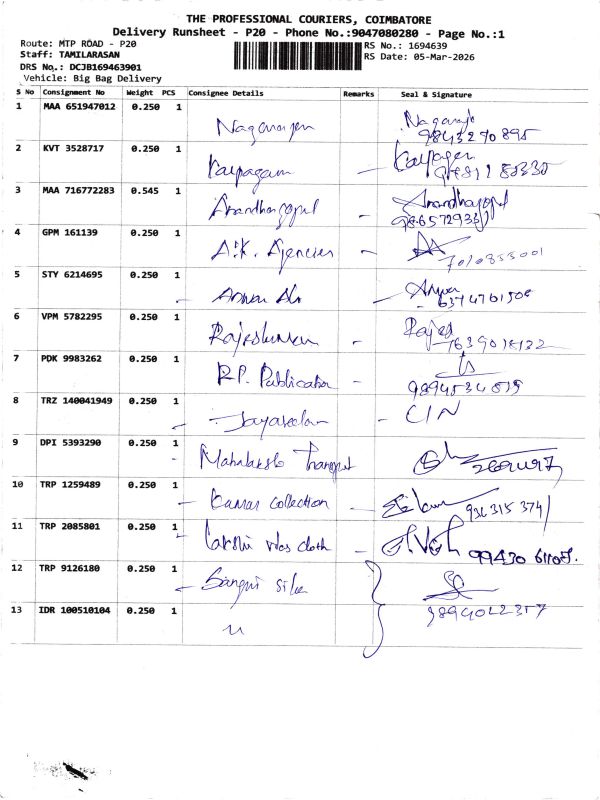 THE PROFESSIONAL COURIERS, COIMBATORE
Delivery Runsheet - P20 - Phone No.:9047080280 - Page No.:1
Route: MTP ROAD - P20
Staff: TAMILARASAN
DRS No.: DCJB169463901
Vehicle: Big Bag Delivery
RS No.: 1694639
RS Date: 05-Mar-2026
S No Consignment No Weight PCS Consignee Details Remarks Seal & Signature
1 MAA 651947012 0.250 1
2 KVT 3528717 0.250 1 Karpagam - Karpagam
3 MAA 716772283 0.545 1 Anandhagopal - Anandhagopal
4 GPM 161139 0.250 1 A.K. Agencies -
7010833001
5 STY 6214695 0.250 1 Anwar Ali - Anwar
6 VPM 5782295 0.250 1 - Rajes
7 PDK 9983262 0.250 1 R.P. Publication -
8 TRZ 140041949 0.250 1 Jayaseelan - CIN
9 DPI 5393290 0.250 1
10 TRP 1259489 0.250 1 collection -
11 TRP 2085801 0.250 1 cloth -
12 TRP 9126180 0.250 1
13 IDR 100510104 0.250 1 "
9894022357